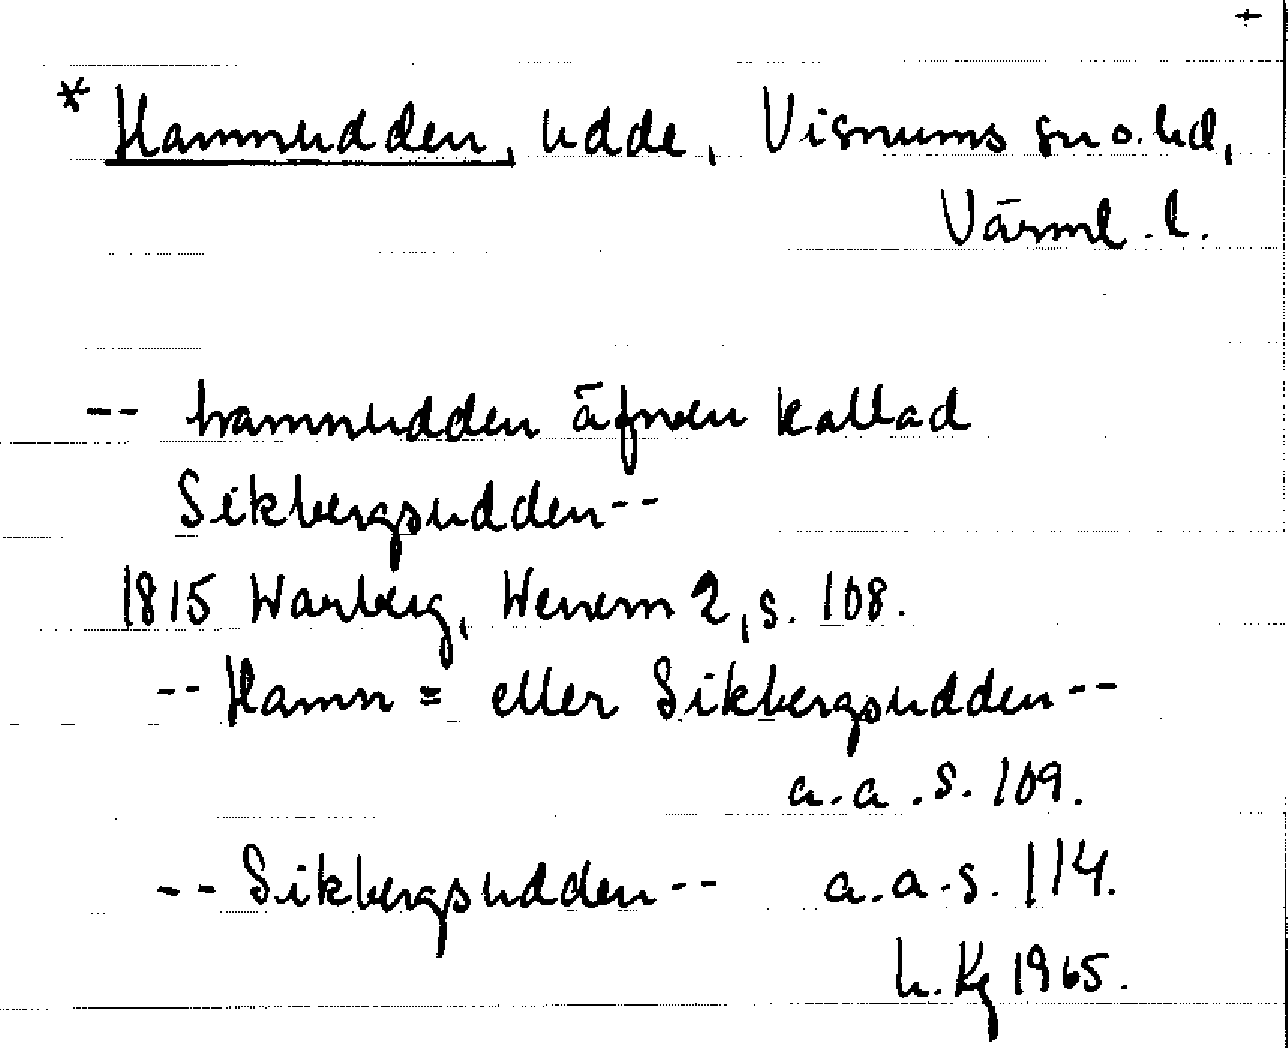 +
* Hamnudden, udde, Visnums sn o. hd,
Värml. l.
-- hamnudden äfven kallad
Sikbergsudden--
1815 Warberg, Wenern 2, s. 108.
-- Hamn= eller Sikbergsudden--
a.a. s. 109.
-- Sikbergsudden-- a.a.s. 114.
Kg 1965.